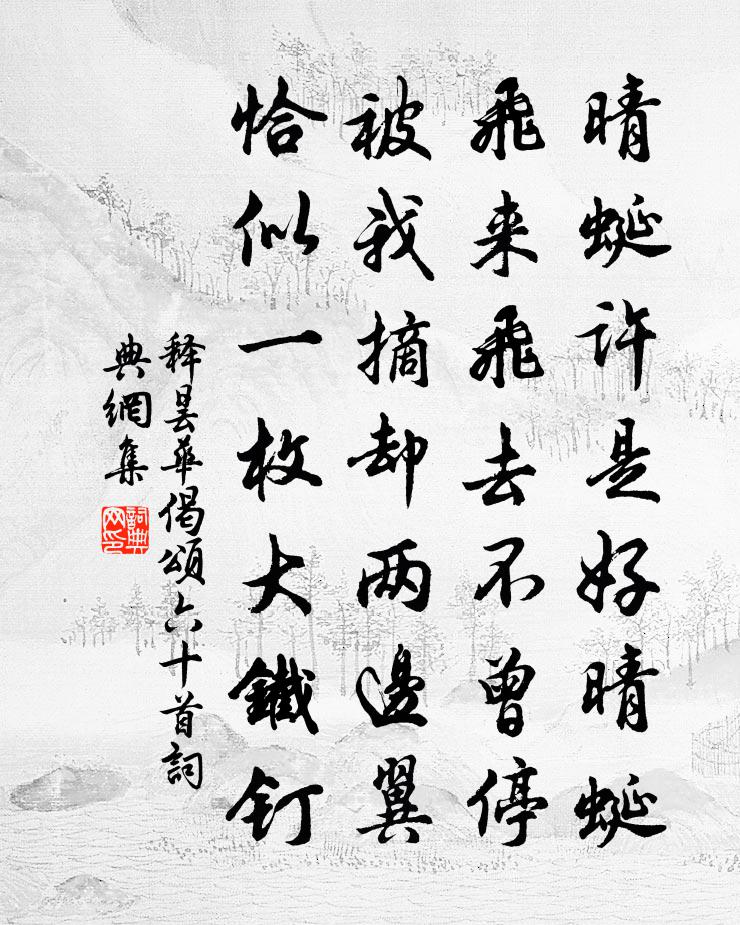 晴蜓许是好晴蜓
飛来飛去不曾停
被我摘却两邊翼
恰似一枚大鐵钉
释昙华偈頌六十首詞
典網集
詞典
网印